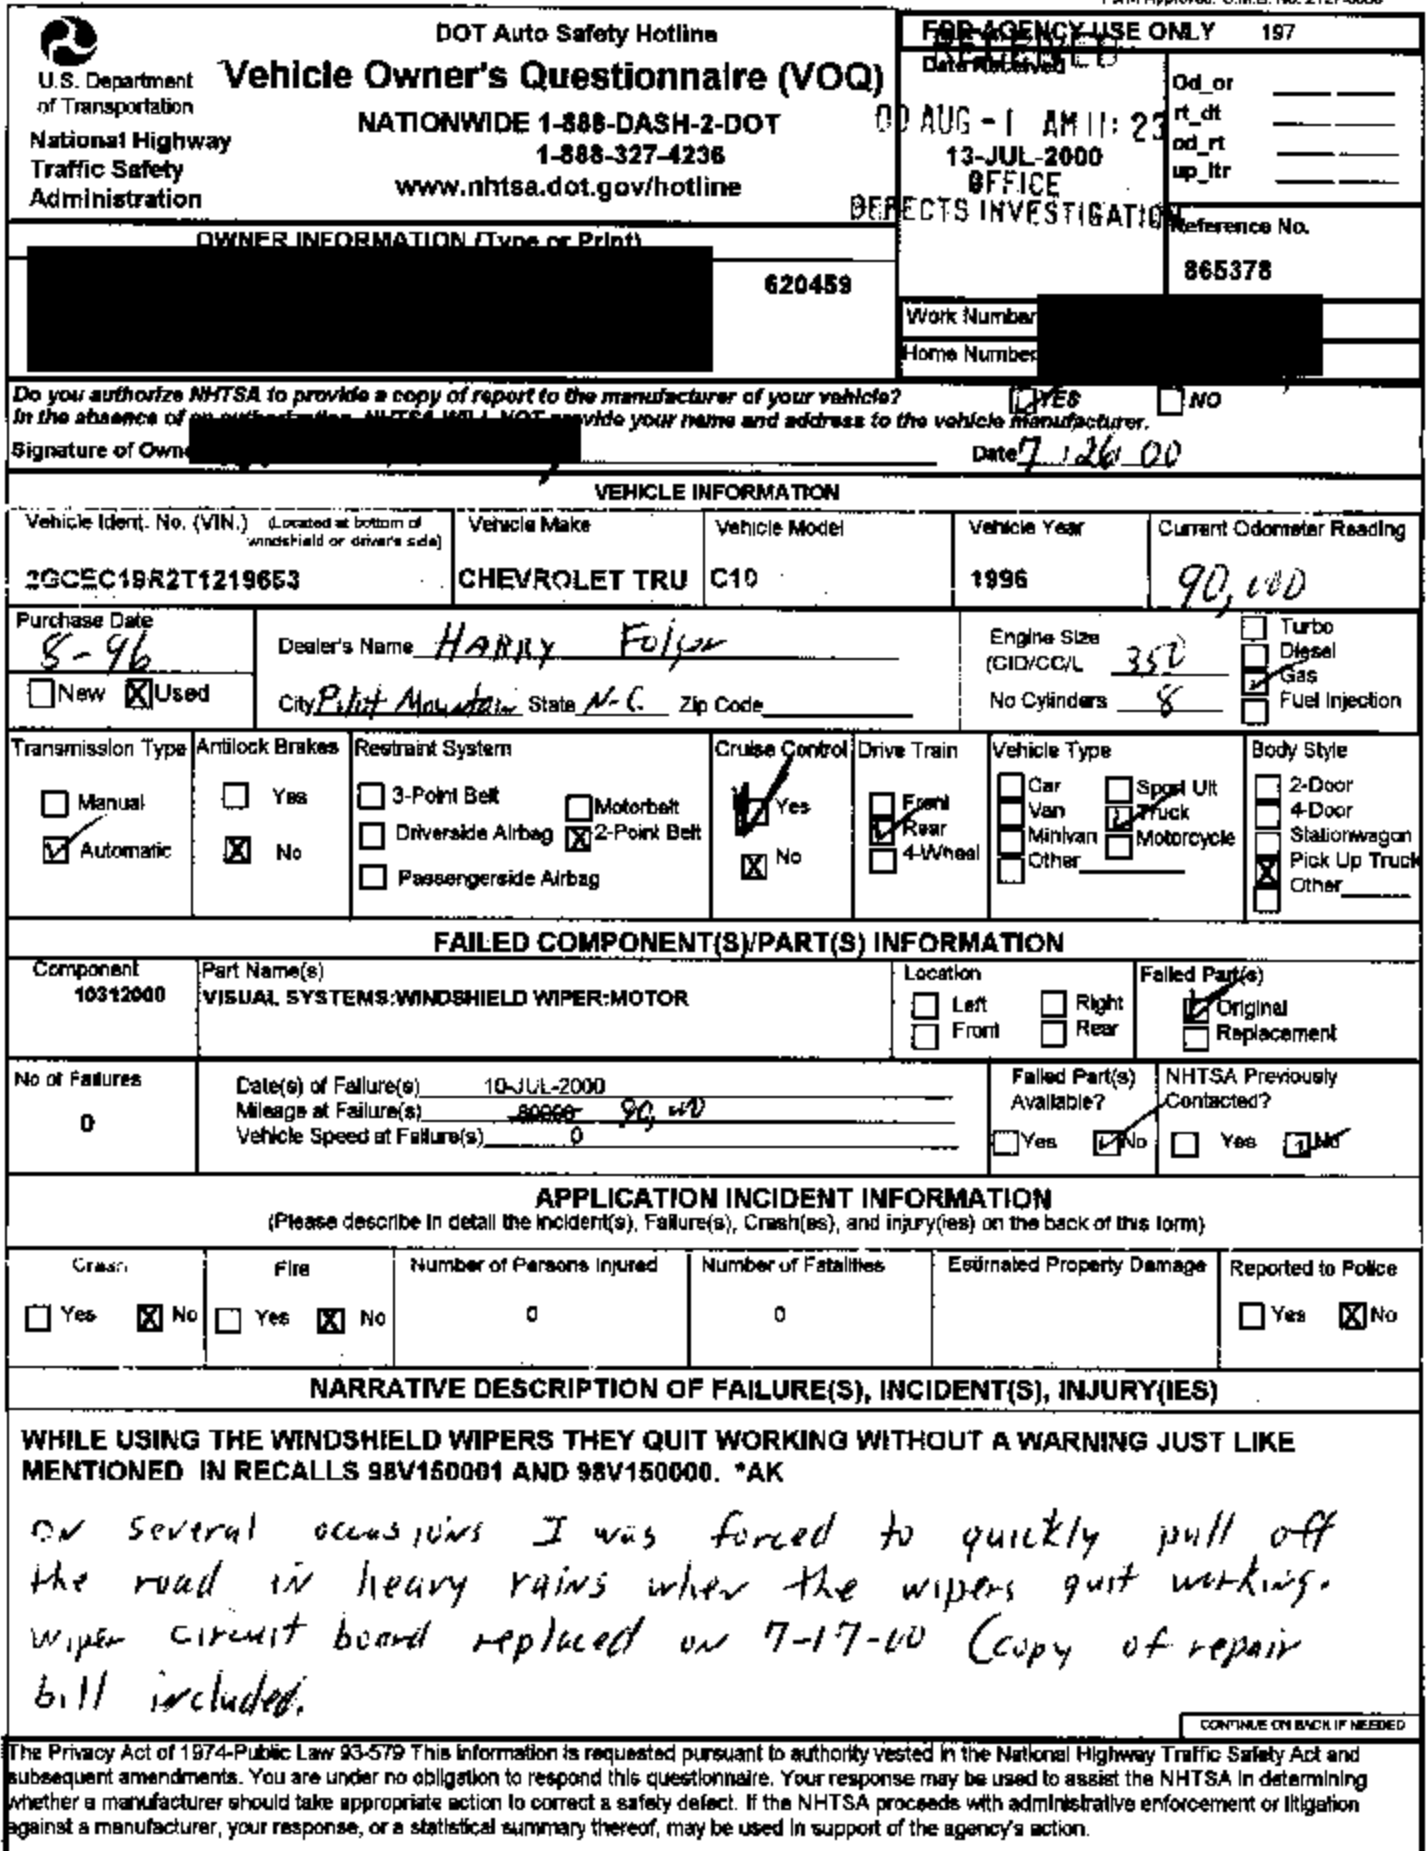 DOT Auto Safety Hotline
Vehicle Owner's Questionnaire (VOQ)
NATIONWIDE 1-888-DASH-2-DOT
1-888-327-4236
www.nhtsa.dot.gov/hotline
U.S. Department
of Transportation
National Highway
Traffic Safety
Administration
FOR AGENCY USE ONLY 197
RECEIVED
Date Received
00 AUG -1 AM 11: 23
13-JUL-2000
OFFICE
DEFECTS INVESTIGATION
Od_or
rt_dt
od_rt
up_ltr
Reference No.
865378
OWNER INFORMATION (Type or Print)
620459
Work Number
Home Number
Do you authorize NHTSA to provide a copy of report to the manufacturer of your vehicle? YES NO
In the absence of an authorization, NHTSA WILL NOT provide your name and address to the vehicle manufacturer.
Signature of Owne Date 7 26 00
VEHICLE INFORMATION
Vehicle Ident. No. (VIN.) (Located at bottom of windshield or driver's side)
2GCEC19R2T1219653
Vehicle Make
CHEVROLET TRU
Vehicle Model
C10
Vehicle Year
1996
Current Odometer Reading
90,000
Purchase Date
8-96
New X Used
Dealer's Name HARRY
City Pilot Mountain State N-C. Zip Code
Engine Size
(CID/CC/L 350
No Cylinders 8
Turbo
Diesel
Gas
Fuel Injection
Transmission Type
Manual
Automatic
Antilock Brakes
Yes
X No
Restraint System
3-Point Belt
Driverside Airbag
Passengerside Airbag
Motorbelt
X 2-Point Belt
Cruise Control
Yes
X No
Drive Train
Front
Rear
4-Wheel
Vehicle Type
Car
Van
Minivan
Other
Sport Ult
Truck
Motorcycle
Body Style
2-Door
4-Door
Stationwagon
X Pick Up Truck
Other
FAILED COMPONENT(S)/PART(S) INFORMATION
Component
10312000
Part Name(s)
VISUAL SYSTEMS:WINDSHIELD WIPER:MOTOR
Location
Left Right
Front Rear
Failed Part(s)
Original
Replacement
No of Failures
0
Date(s) of Failure(s) 10-JUL-2000
Mileage at Failure(s) 90,000
Vehicle Speed at Failure(s) 0
Failed Part(s)
Available?
Yes No
NHTSA Previously
Contacted?
Yes No
APPLICATION INCIDENT INFORMATION
(Please describe in detail the incident(s), Failure(s), Crash(es), and injury(ies) on the back of this form)
Crash
Yes X No
Fire
Yes X No
Number of Persons Injured
0
Number of Fatalities
0
Estimated Property Damage
Reported to Police
Yes X No
NARRATIVE DESCRIPTION OF FAILURE(S), INCIDENT(S), INJURY(IES)
WHILE USING THE WINDSHIELD WIPERS THEY QUIT WORKING WITHOUT A WARNING JUST LIKE
MENTIONED IN RECALLS 98V150001 AND 98V150000. *AK
ON several occasions I was forced to quickly pull off
the road in heavy rains when the wipers quit working.
Wiper circuit board replaced on 7-17-00 (copy of repair
bill included.
CONTINUE ON BACK IF NEEDED
The Privacy Act of 1974-Public Law 93-579 This information is requested pursuant to authority vested in the National Highway Traffic Safety Act and
subsequent amendments. You are under no obligation to respond this questionnaire. Your response may be used to assist the NHTSA in determining
whether a manufacturer should take appropriate action to correct a safety defect. If the NHTSA proceeds with administrative enforcement or litigation
against a manufacturer, your response, or a statistical summary thereof, may be used in support of the agency's action.